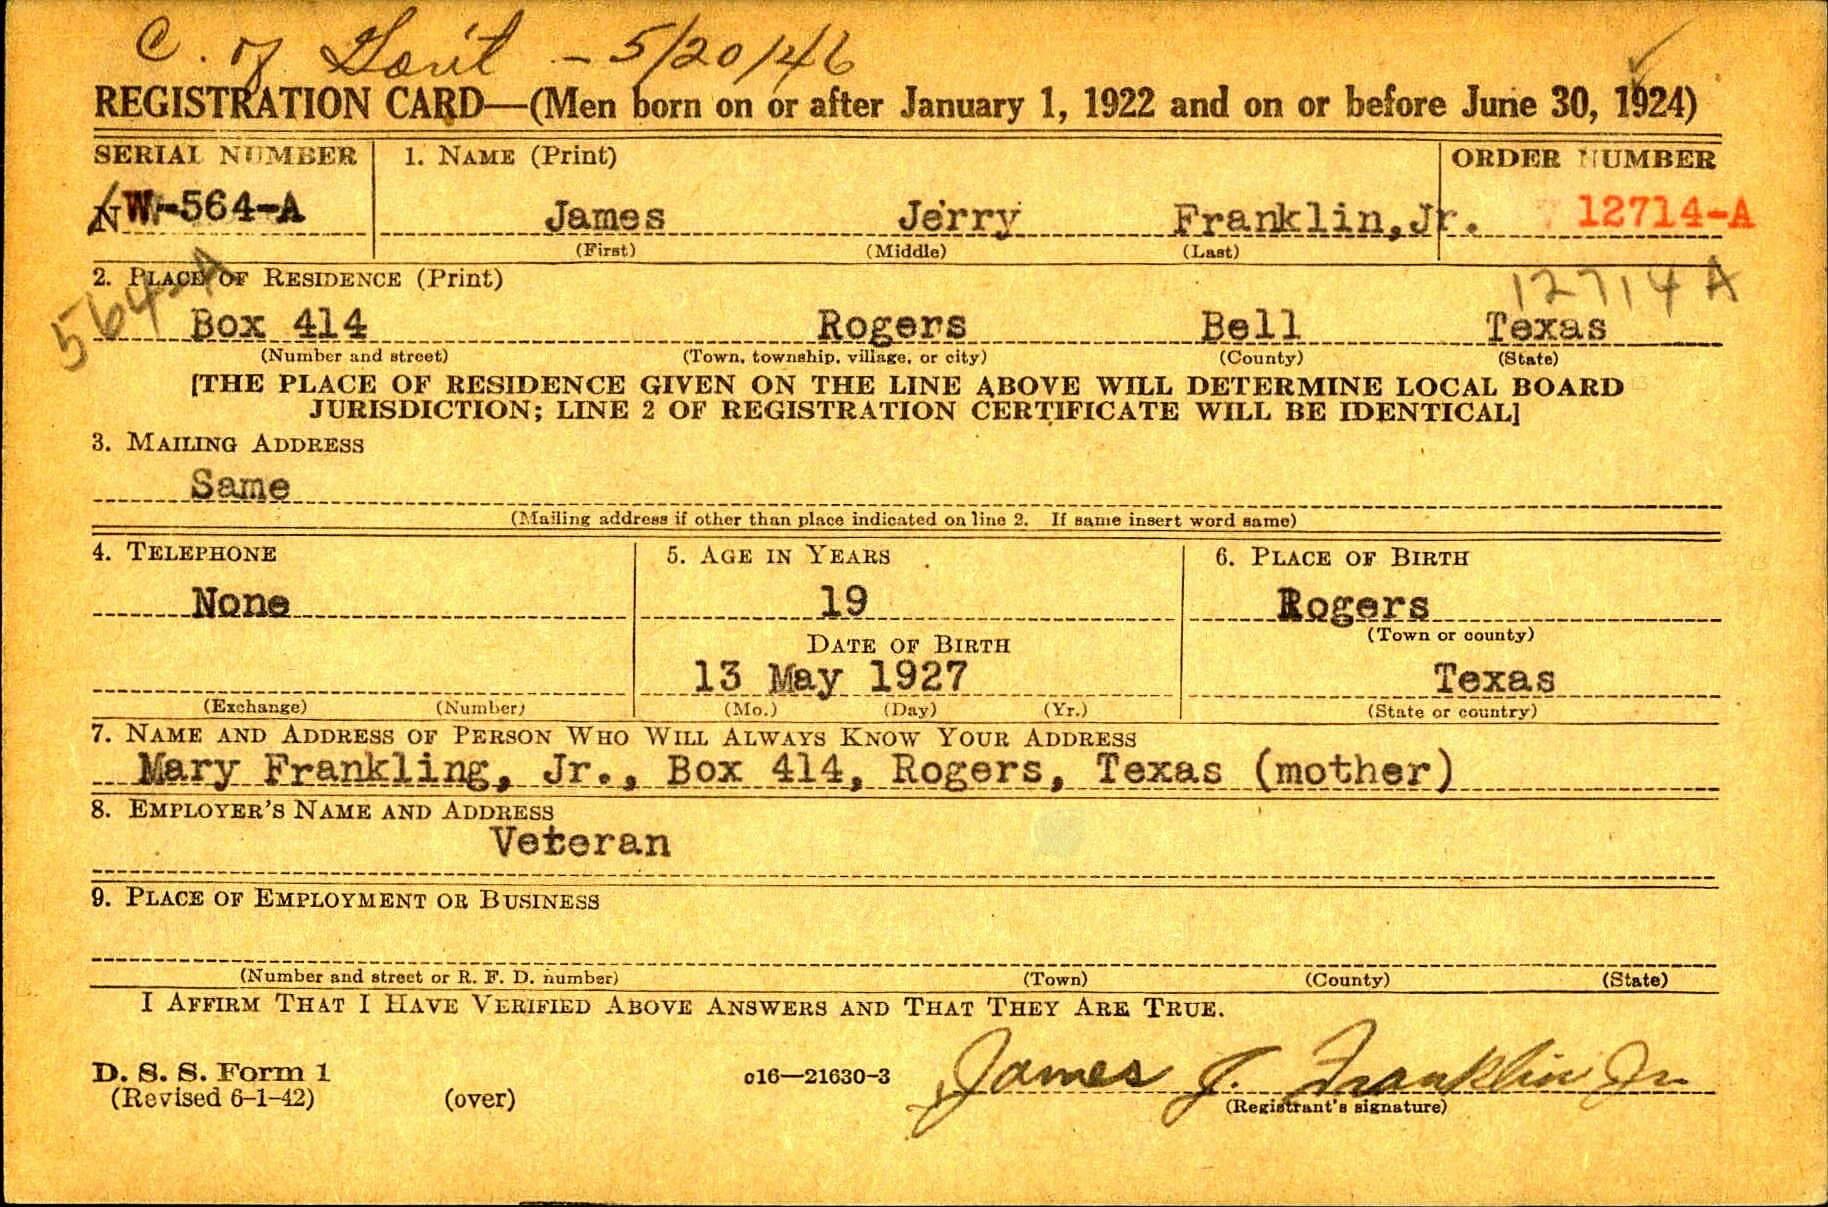 C. of Gov't - 5/20/46
REGISTRATION CARD—(Men born on or after January 1, 1922 and on or before June 30, 1924)
SERIAL NUMBER 1. NAME (Print) ORDER NUMBER
W-564-A James Jerry Franklin, Jr. 12714-A
(First) (Middle) (Last)
2. PLACE OF RESIDENCE (Print) 12714A
564-A
Box 414 Rogers Bell Texas
(Number and street) (Town, township, village, or city) (County) (State)
[THE PLACE OF RESIDENCE GIVEN ON THE LINE ABOVE WILL DETERMINE LOCAL BOARD
JURISDICTION; LINE 2 OF REGISTRATION CERTIFICATE WILL BE IDENTICAL]
3. MAILING ADDRESS
Same
(Mailing address if other than place indicated on line 2. If same insert word same)
4. TELEPHONE 5. AGE IN YEARS 6. PLACE OF BIRTH
None 19 Rogers
(Town or county)
DATE OF BIRTH
13 May 1927 Texas
(Exchange) (Number) (Mo.) (Day) (Yr.) (State or country)
7. NAME AND ADDRESS OF PERSON WHO WILL ALWAYS KNOW YOUR ADDRESS
Mary Frankling, Jr., Box 414, Rogers, Texas (mother)
8. EMPLOYER'S NAME AND ADDRESS
Veteran
9. PLACE OF EMPLOYMENT OR BUSINESS
(Number and street or R. F. D. number) (Town) (County) (State)
I AFFIRM THAT I HAVE VERIFIED ABOVE ANSWERS AND THAT THEY ARE TRUE.
D. S. S. Form 1 c16—21630-3 James J. Franklin Jr
(Revised 6-1-42) (over) (Registrant's signature)